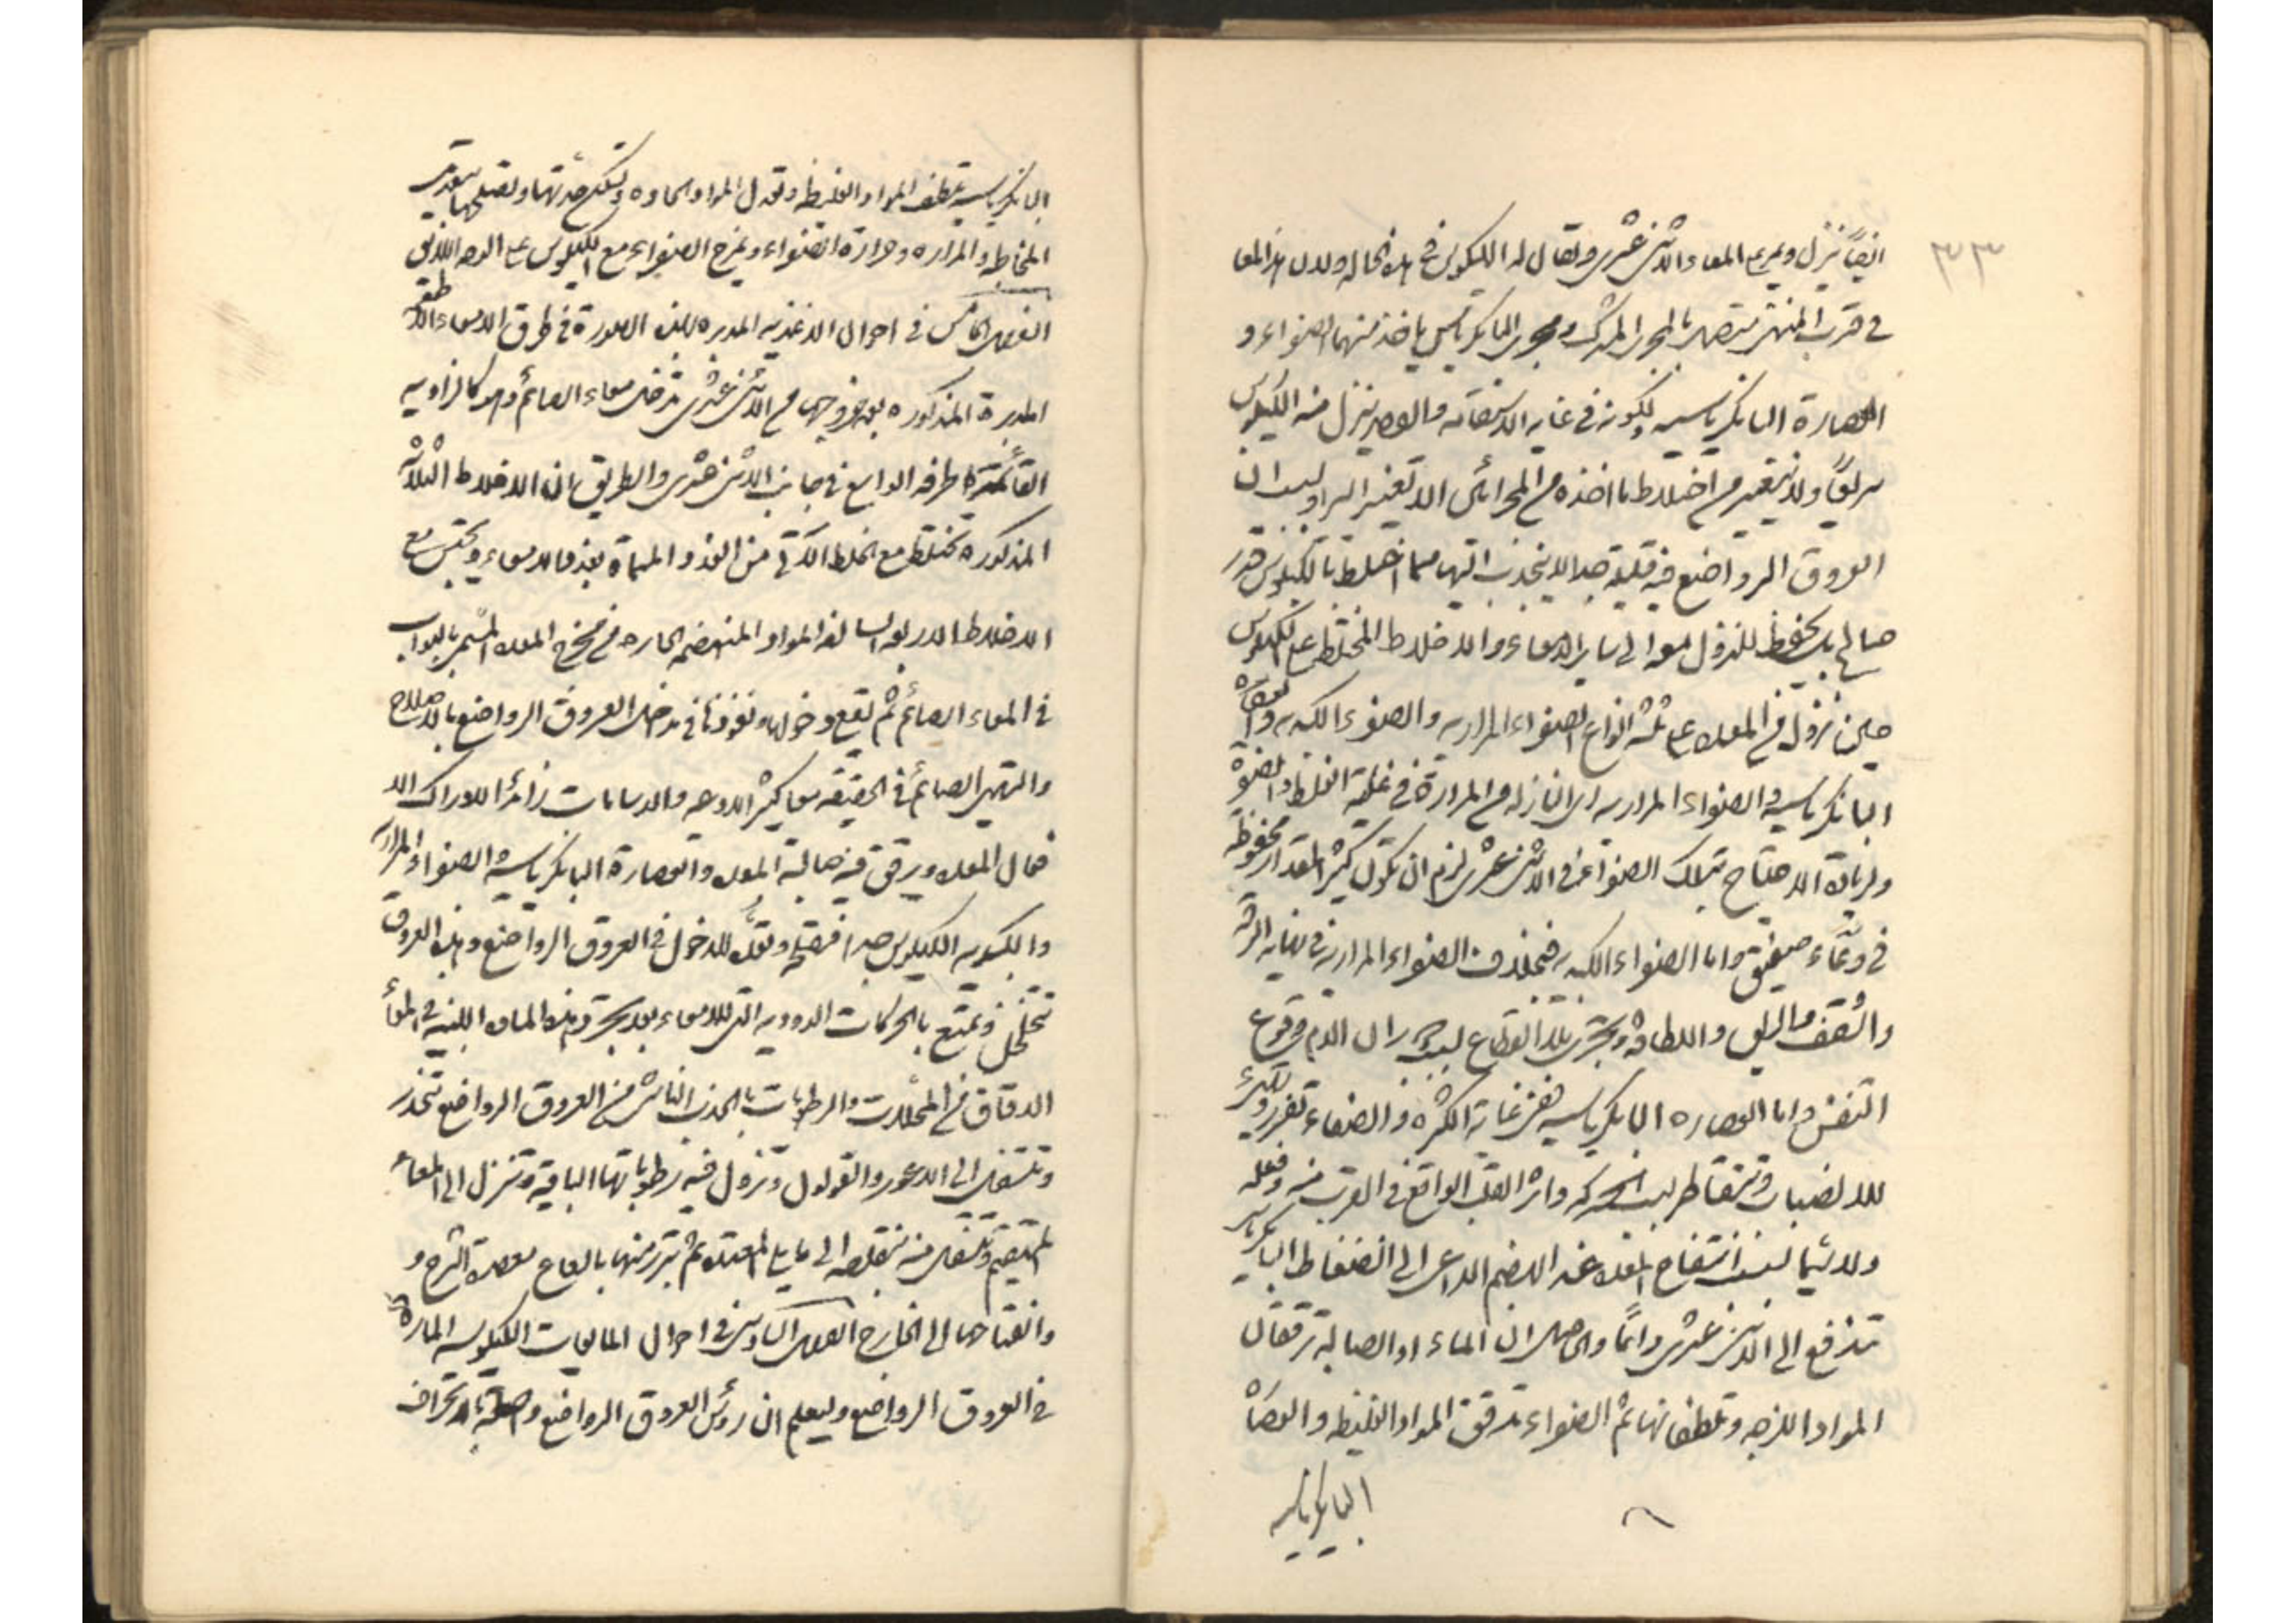 ٣٣
ايضاً ينزل ويمر على المعاء الاثنى عشرى ويقال له الكيلوس فى هذه الحالة ولان هذا المعا
فى قرب المنتهى متصل بالمجرى المشترك ومجرى البانكرياس ياخذ منهما الصفراء و
العصارة البانكرياسية ولكونه فى غاية الاستقامة والقصر ينزل منه الكيلوس
سريعاً ولا يتغير من اختلاط ما اخذه من المجرائين الا تغيراً يسيراً وبسبب ان
العروق الرواضع فيه قليلة جدا لا ينجذب اليها مما اختلط بالكيلوس قدر
صالح بل يحفظ للنزول معه الى ساير الامعاء والاخلاط المختلط على الكيلوس
حين نزوله من المعدة على ثلثة انواع الصفراء المرارية والصفراء الكبدية والعصارة
البانكرياسية والصفراء المرارية اى النازلة من المرارة فى غاية الغلظ والصفرة
ولزيادة الاحتياج بتلك الصفراء فى الاثنى عشرى لزم ان تكون كثير المقدار محفوظة
فى وعاء ضيق واما الصفراء الكبدية فبخلاف الصفراء المرارية فى نهاية الرقة
والشفف والريق واللطافة وتجرى بلا انقطاع بسبب جريان الدم ووقوع
التنفس واما العصارة البانكرياسية ففى غاية الكثرة والصفاء تفرز وتكثر
للانصباب وتتقاطر بسبب الحركة واثر القلب الواقع فى القرب منه وفعله
ولا سيما بسبب انتفاخ المعدة عند الهضم الداعى الى انضغاط البانكرياس
تندفع الى الاثنى عشرى دائماً والحاصل ان الماء او الصابة ترققان
المواد اللزجة وتلطفانها ثم الصفراء ترقق المواد الغليظة والعصارة
البانكرياسية
البانكرياسية تلطف المواد الغليظة وتعدل المواد الحادة وتسكن حدتها وتصلحها بعد
المخاطية والمرارة وحرارة الصفراء ويمزج الصفراء مع الكيلوس على الوجه اللائق
الفصل الخامس فى احوال الاغذية المدبرة بهذه الصورة فى طرق الامعاء الاغذية
المدبرة المذكورة بعد خروجها من الاثنى عشرى تدخل معاء الصائم وهو كالزاوية
القائمة طرفه الواسع فى جانب الاثنى عشرى والطريق ان الاخلاط الثلاثة
المذكورة تختلط مع الخلط الآتى من الغدد المسماة بغدد الامعاء ويحتبس مع
الاخلاط الاربعة السالفة المواد المنهضمة الحارة من مخرج المعدة المسمى بالبواب
فى المعاء الصائم ثم يقع دخولها ونفوذها فى مدخل العروق الرواضع بالاصلاح
والتهيئ الصائم فى الحقيقة معا كثير الاوعية والمسامات زائد الادراك الا
فمال المعدة ويرقق فيه صابة المعدة والعصارة البانكرياسية الصفراء المرارية
والكبدية الكيلوس جداً فيصلح وتعد للدخول فى العروق الرواضع وهذه العروق
تتخلخل وتمتع بالحركات الدودية التى للامعاء بعد تجريد هذه المادة اللبنية فى المعا
الدقاق من المحللات والرطوبات بالجذب الناشى من العروق الرواضع تنحدر
وتنتقل الى الاعور والقولون وتزول فيه رطوباتها الباقية وتنزل الى المعاء
المستقيم وتنتقل منه متقلصة الى ما يلى المقعدة ثم تبرز منها بالعاح معصرة الشرج و
وانفتاحها الى الخارج الفصل السادس فى احوال المايعات الكيلوسية المارة
فى العروق الرواضع وليعلم ان رؤس العروق الرواضع واصلة بانحراف